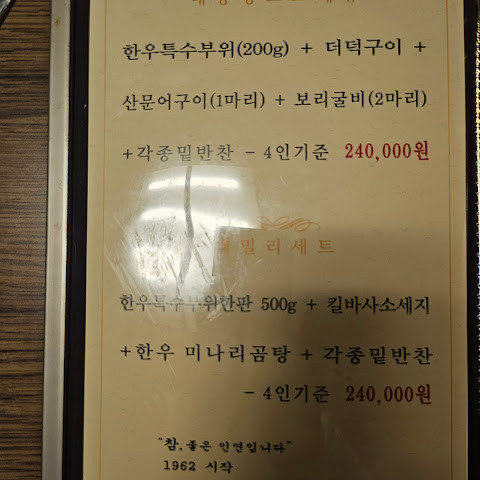 한우특수부위(200g) + 더덕구이 +
산문어구이(1마리) + 보리굴비(2마리)
+각종밑반찬 - 4인기준 240,000원
패밀리세트
한우특수부위한판 500g + 킬바사소세지
+한우 미나리곰탕 + 각종밑반찬
- 4인기준 240,000원
"참, 좋은 인연입니다"
1962 시작